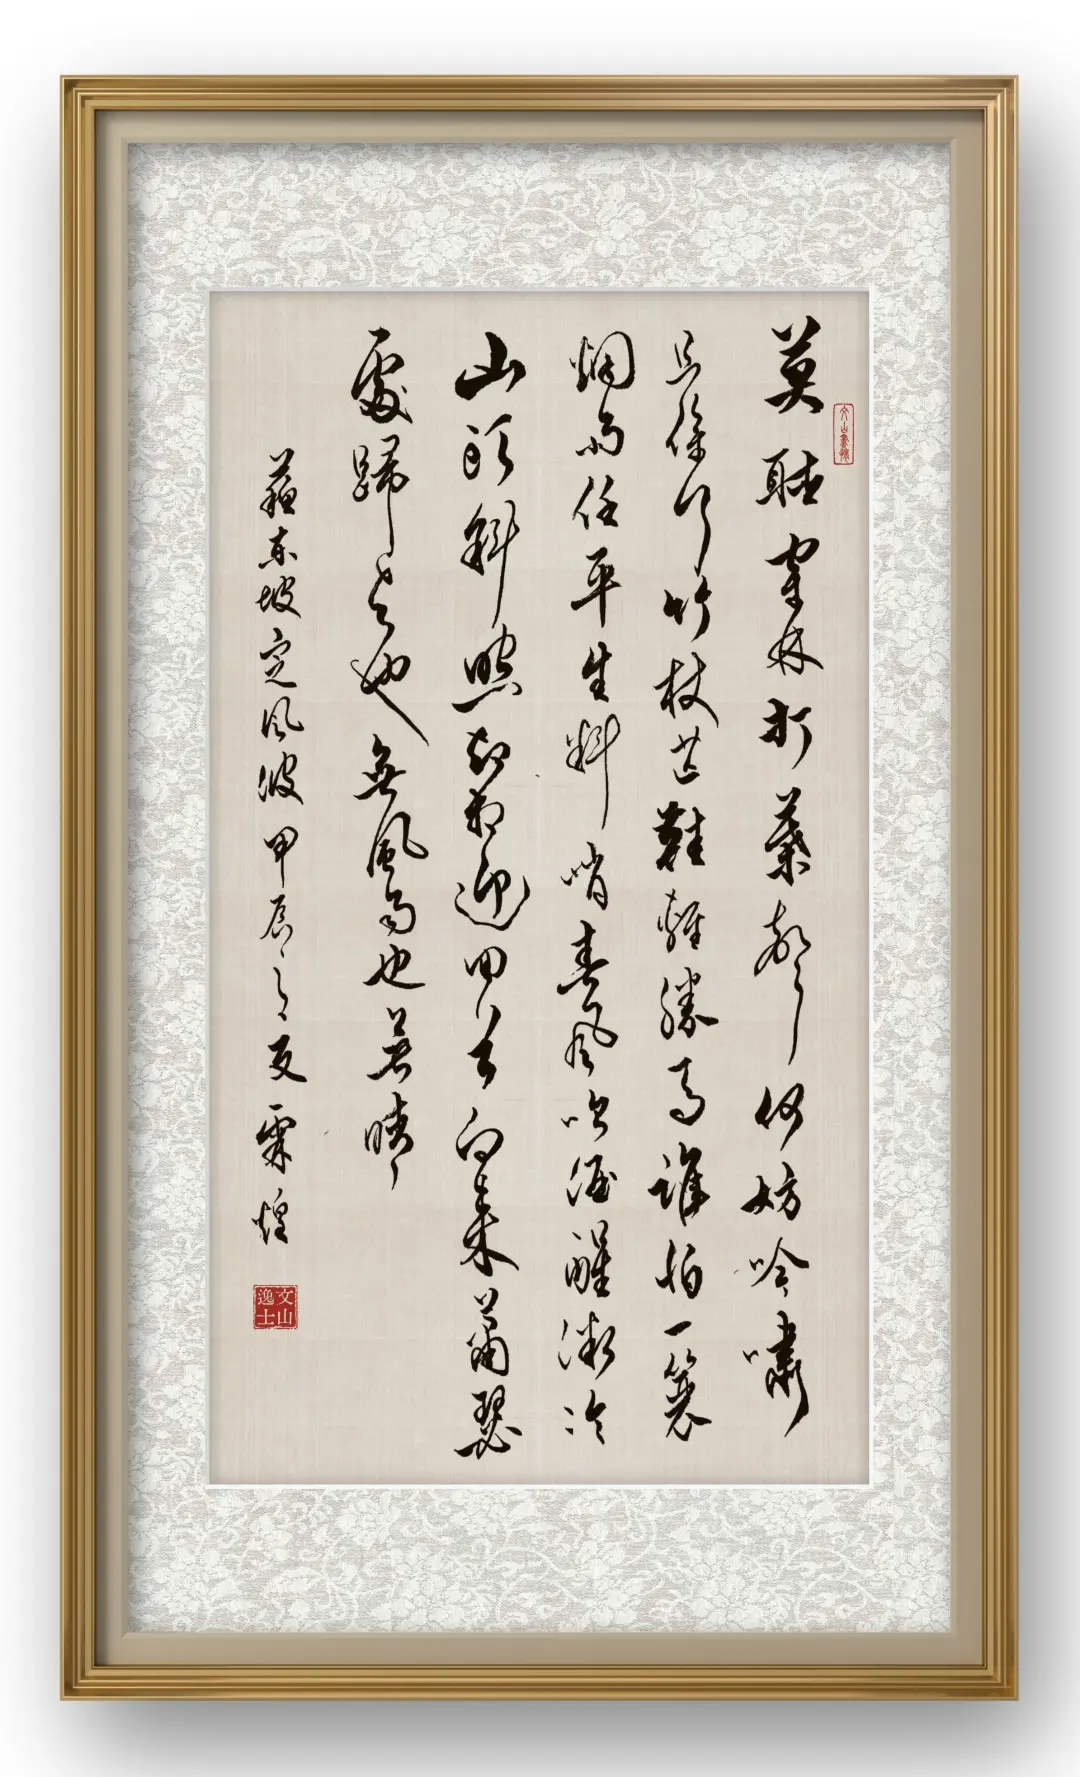 莫聽穿林打葉聲何妨吟嘯
且徐行竹杖芒鞋輕勝馬誰怕一蓑
烟雨任平生料峭春風吹酒醒微冷
山頭斜照却相迎回首向来蕭瑟
處歸去也無風雨也無晴
蘇東坡定風波甲辰之夏霖煌
文山逸士
文山書